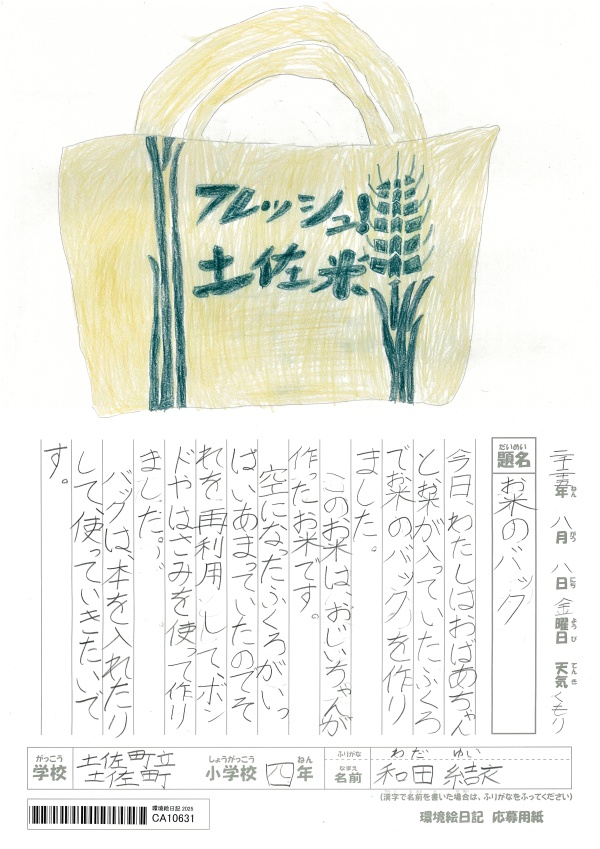 フレッシュ!
土佐米
二〇二五年 八月 八日 金曜日 天気 くもり
ねん がつ にち ようび てんき
だいめい
題名 お米のバック
今日、わたしはおばあちゃん
とお米が入っていたふくろ
でお米のバックを作り
ました。
このお米は、おじいちゃんが
作ったお米です。
空になったふくろがいっ
ぱいあまっていたのでそ
れを再利用してボン
ドやはさみを使って作り
ました。
バッグは、本を入れたり
して、使っていきたいで
す。
がっこう しょうがっこう ねん ふりがな わだ ゆい
学校 土佐町立 土佐町 小学校 四年 なまえ 名前 和田 結衣
(漢字で名前を書いた場合は、ふりがなをふってください)
環境絵日記 2025
CA10631
環境絵日記 応募用紙